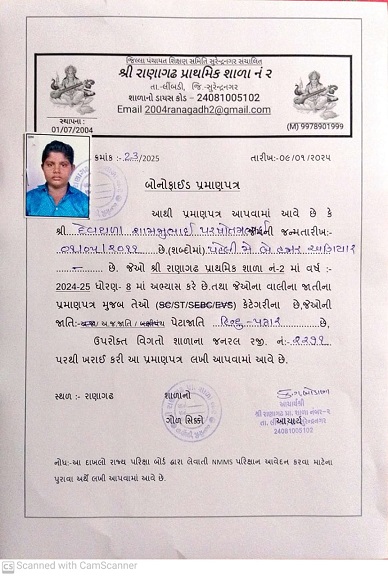 જિલ્લા પંચાયત શિક્ષણ સમિતિ સુરેન્દ્રનગર સંચાલિત
શ્રી રાણાગઢ પ્રાથમિક શાળા નં ૨
તા.-લીંબડી, જિ.-સુરેન્દ્રનગર
શાળાનો ડાયસ કોડ – 24081005102
Email 2004ranagadh2@gmail.com
સ્થાપના :
01/07/2004
(M) 9978901999
ક્રમાંક :- 23/2025
તારીખ:-૦૯/૦૧/૨૦૨૫
બોનોફાઈડ પ્રમાણપત્ર
આથી પ્રમાણપત્ર આપવામાં આવે છે કે
શ્રી દેવથળા શામજીભાઈ પરષોતમભાઈ જેઓની જન્મતારીખ:-
૦૧/૦૫/૨૦૧૧ છે.(શબ્દોમાં) પહેલી મે બે હજાર અગિયાર
છે. જેઓ શ્રી રાણાગઢ પ્રાથમિક શાળા નં-2 માં વર્ષ :-
2024-25 ધોરણ- 8 માં અભ્યાસ કરે છે.તથા જેઓના વાલીના જાતીના
પ્રમાણપત્ર મુજબ તેઓ (SC/ST/SEBC/EVS) કેટેગરીના છે.જેઓની
જાતિ:- અ.જ.જાતિ / પેટાજાતિ હિન્દુ-પઢાર છે,
ઉપરોક્ત વિગતો શાળાના જનરલ રજી. નં:-૨૨૭૧
પરથી ખરાઈ કરી આ પ્રમાણપત્ર લખી આપવામાં આવે છે.
સ્થળ :- રાણાગઢ
શાળાનો
ગોળ સિક્કો
આચાર્યશ્રી
શ્રી રાણાગઢ પ્રા. શાળા નંબર-૨
આચાર્ય
24081005102
નોંધ:-આ દાખલો રાજ્ય પરિક્ષા બોર્ડ દ્વારા લેવાતી NMMS પરિક્ષાન આવેદન કરવા માટેના
પુરાવા અર્થે લખી આપવામાં આવે છે.
CS Scanned with CamScanner